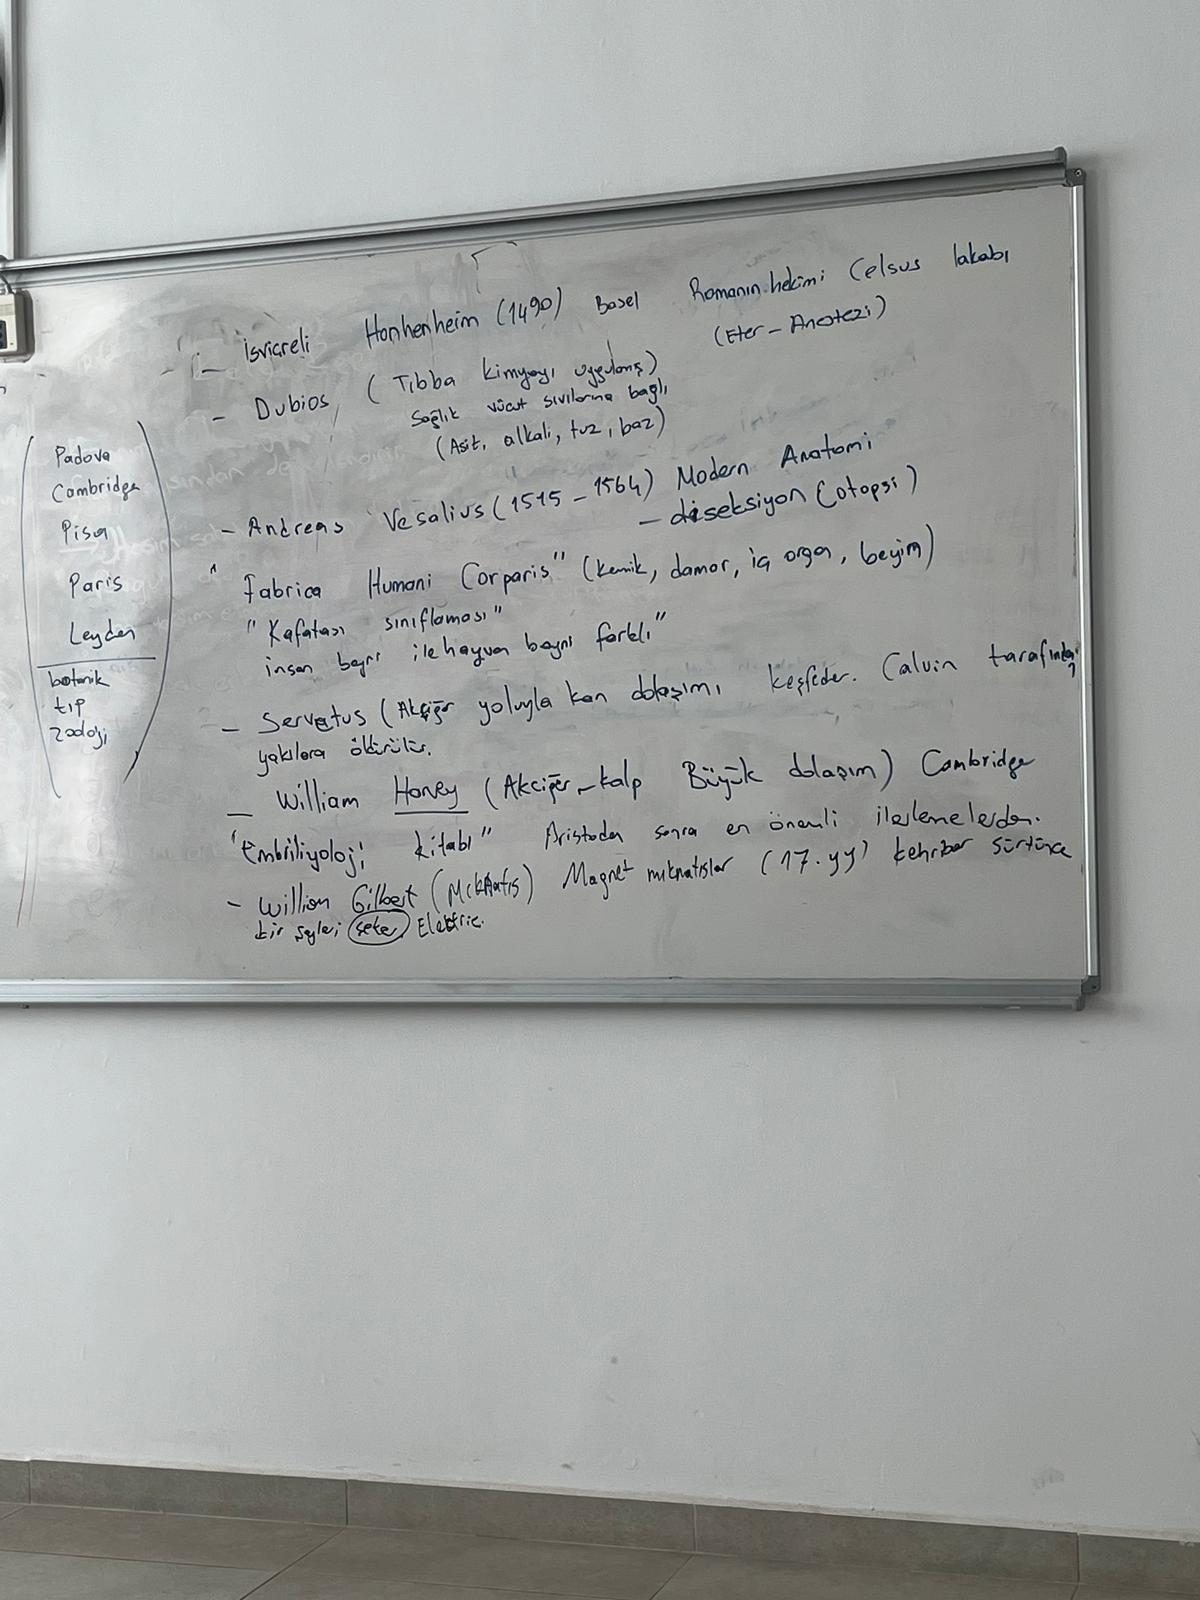 Padova
Cambridge
Pisa
Paris
Leyden
botanik
tıp
zooloji
- İsviçreli Honhenheim (1490) Basel Romanın hekimi Celsus lakabı
(Eter - Anetezi)
- Dubios ( Tıbba kimyayı uygulamış)
Sağlık vücut sıvılarına bağlı
(Asit, alkali, tuz, baz)
- Andreas Vesalius (1515 - 1564) Modern Anatomi
- diseksiyon (otopsi)
" Fabrica Humani Corparis" (kemik, damar, iç organ, beyin)
"Kafatası sınıflaması"
insan beyni ile hayvan beyni farklı"
- Servetus (Akciğer yoluyla kan dolaşımı keşfeder. Calvin tarafından
yakılara öldürülür.
- William Harvey (Akciğer - kalp Büyük dolaşım) Cambridge
"Embriliyoloji kitabı" Aristodan sonra en önemli ilerlemelerden.
- William Gilbert Magnet mıknatıslar (17. yy) kehribar sürtünce
bir şeyleri çeker Elektric.